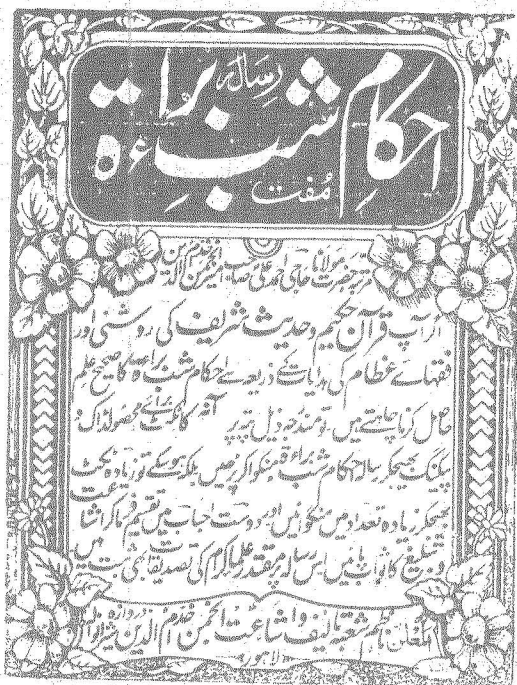 رسالہ
احکام شب براءۃ
مفت
مرتبہ حضرت مولانا حاجی احمد علی صاحب امیر انجمن خدام الدین
اگر آپ قرآن حکیم و حدیث شریف کی روشنی اور
فقہائے عظام کی ہدایات کے ذریعہ سے احکام شب براءۃ کا صحیح علم
حاصل کرنا چاہتے ہیں۔ تو مندرجہ ذیل پتہ پر آنہ کا ٹکٹ برائے محصولڈاک و
پیکنگ بھیجکر رسالہ احکام شب براءۃ منگوا کر پڑھیں بلکہ ہو سکے تو زیادہ ٹکٹ
بھیجکر زیادہ تعداد میں منگوائیں اور دوست احباب میں تقسیم فرما کر اشاعت
و تبلیغ کا ثواب پائیں اس رسالہ پر مقتدر علماء کرام کی تصدیقات بھی ثبت ہیں
المعلن ناظم شعبہ تالیف و اشاعت انجمن خدام الدین دروازہ شیرانوالہ
لاہور